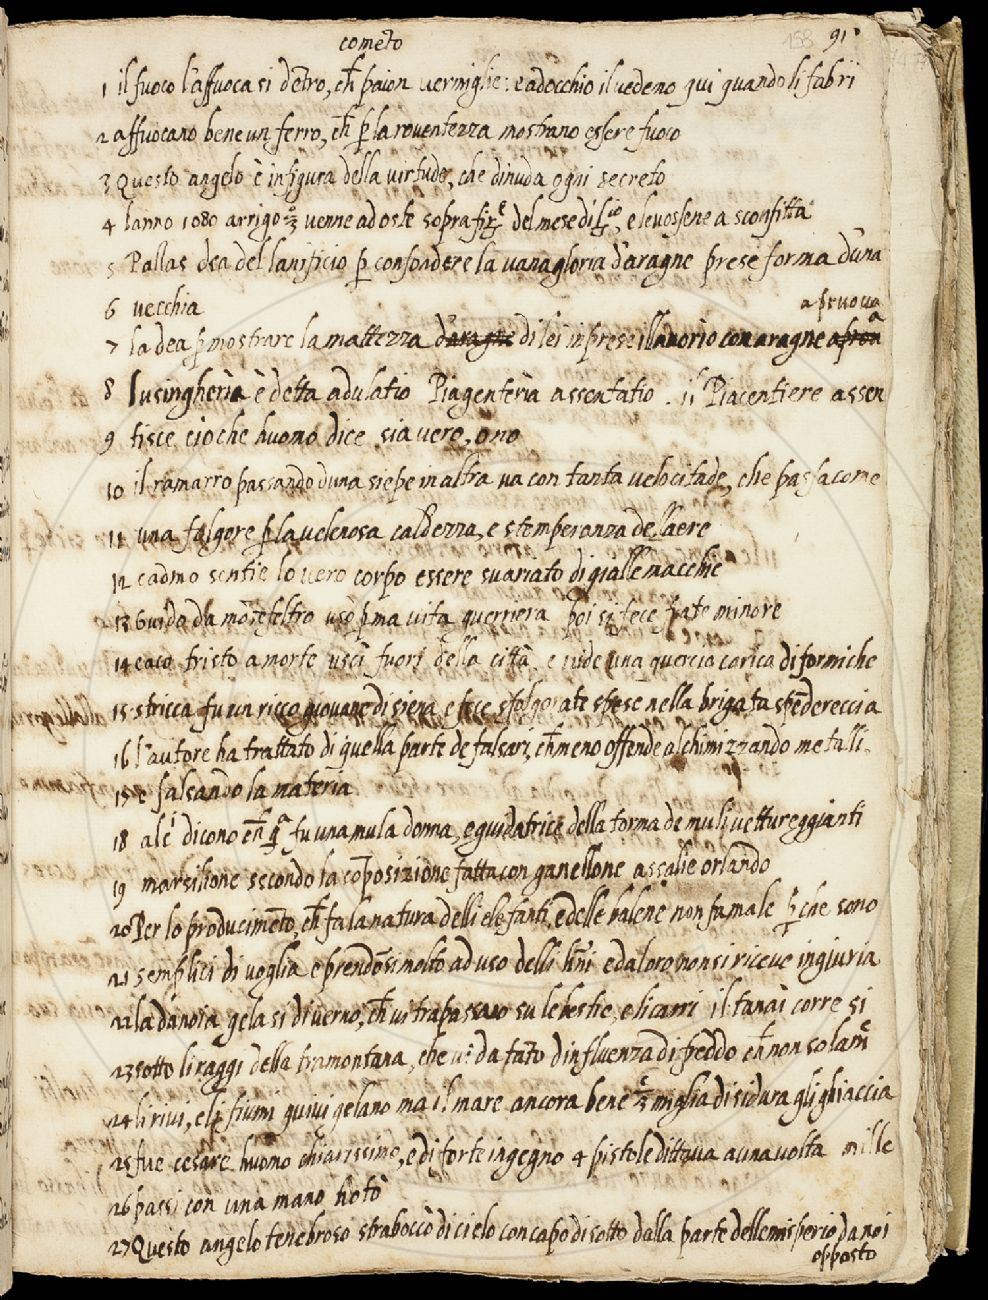 cometo
158 91
1 il fuoco l'affuoca si dẽtro, ch̃ paion vermiglie: e adocchio il vedemo qui quando li fabri
2 affuocano bene un ferro, ch̃ ꝑ la roventezza mostrano essere fuoco
3 Questo angelo è in figura della virtude, che dinuda ogni secreto
4 lanno 1080 arrigo venne ad oste sopra del mese di e levossene a sconfitta
5 Pallas dea del lanificio ꝑ confondere la vanagloria d'aragne prese forma d'una
6 vecchia
a pruova
7 la dea ꝑ mostrare la mattezza d'aragne di lei in prese il lavorio con aragne
8 lusingheria è detta adulatio Piagenteria assentatio. il Piacentiere assen
9 tisce cio che huomo dice sia vero, o no
10 il ramarro passando duna siepe in altra va con tanta velocitade, che passa come
11 una folgore ꝑ la velenosa caldezza, e stemperanza de laere
12 cadmo sentie lo vero corpo essere svariato di gialle macchie
13 Guido da mõtefeltro usò pma vita guerriera poi si fece frate minore
14 eaco tristo a morte uscì fuori della città, e vide una quercia carica di formiche
15 stricca fu un ricco giovane di siena e fece sfolgorate spese nella brigata spẽdereccia
16 l'autore ha trattato di quella parte de falsari, ch̃ meno offende alchimizzando metalli.
17 e falsando la materia
18 alc̃i dicono ch̃ fu una mula donna, e guidatrice della torma de muli vettureggianti
19 marsilione secondo la cõposizione fatta con ganellone assalie orlando
20 Per lo producimẽto, ch̃ fa la natura delli elefanti, e delle balene non fa male ꝑche sono
21 semplici di voglia e prendõsi molto ad uso delli e da loro non si riceve ingiuria
22 la dãnoia gela si di verno, ch̃ vi trapassano su le bestie, e li carri il tanai corre si
23 sotto li raggi della tramontana, che vi da tãto d'influenza di freddo ch̃ non solamẽ
24 li rivi, e li fiumi quivi gelano ma il mare ancora bene miglia di sidura gli ghiaccia
25 fue cesare huomo chiarissimo, e di forte ingegno 4 pistole dittava a una volta mille
26 passi con una mano notò
27 Questo angelo tenebroso straboccò di cielo con capo di sotto dalla parte dellemisperio da noi
opposto